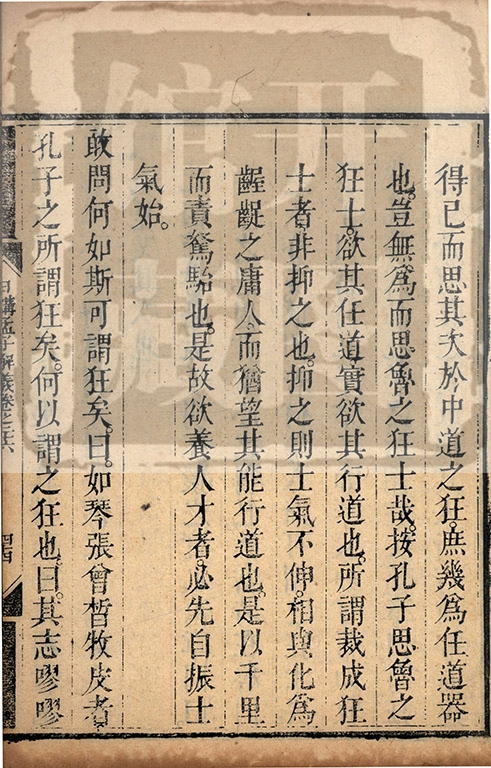 得已而思其次於中道之狂庶幾爲任道器
也豈無爲而思魯之狂士哉按孔子思魯之
狂士欲其任道實欲其行道也所謂裁成狂
士者非抑之也抑之則士氣不伸相與化爲
齷齪之庸人而猶望其能行道也是以千里
而責駑駘也是故欲養人才者必先自振士
氣始
敢問何如斯可謂狂矣曰如琴張曾晳牧皮者
孔子之所謂狂矣何以謂之狂也曰其志嘐嘐
日講孟子解義卷之廿六
四十四